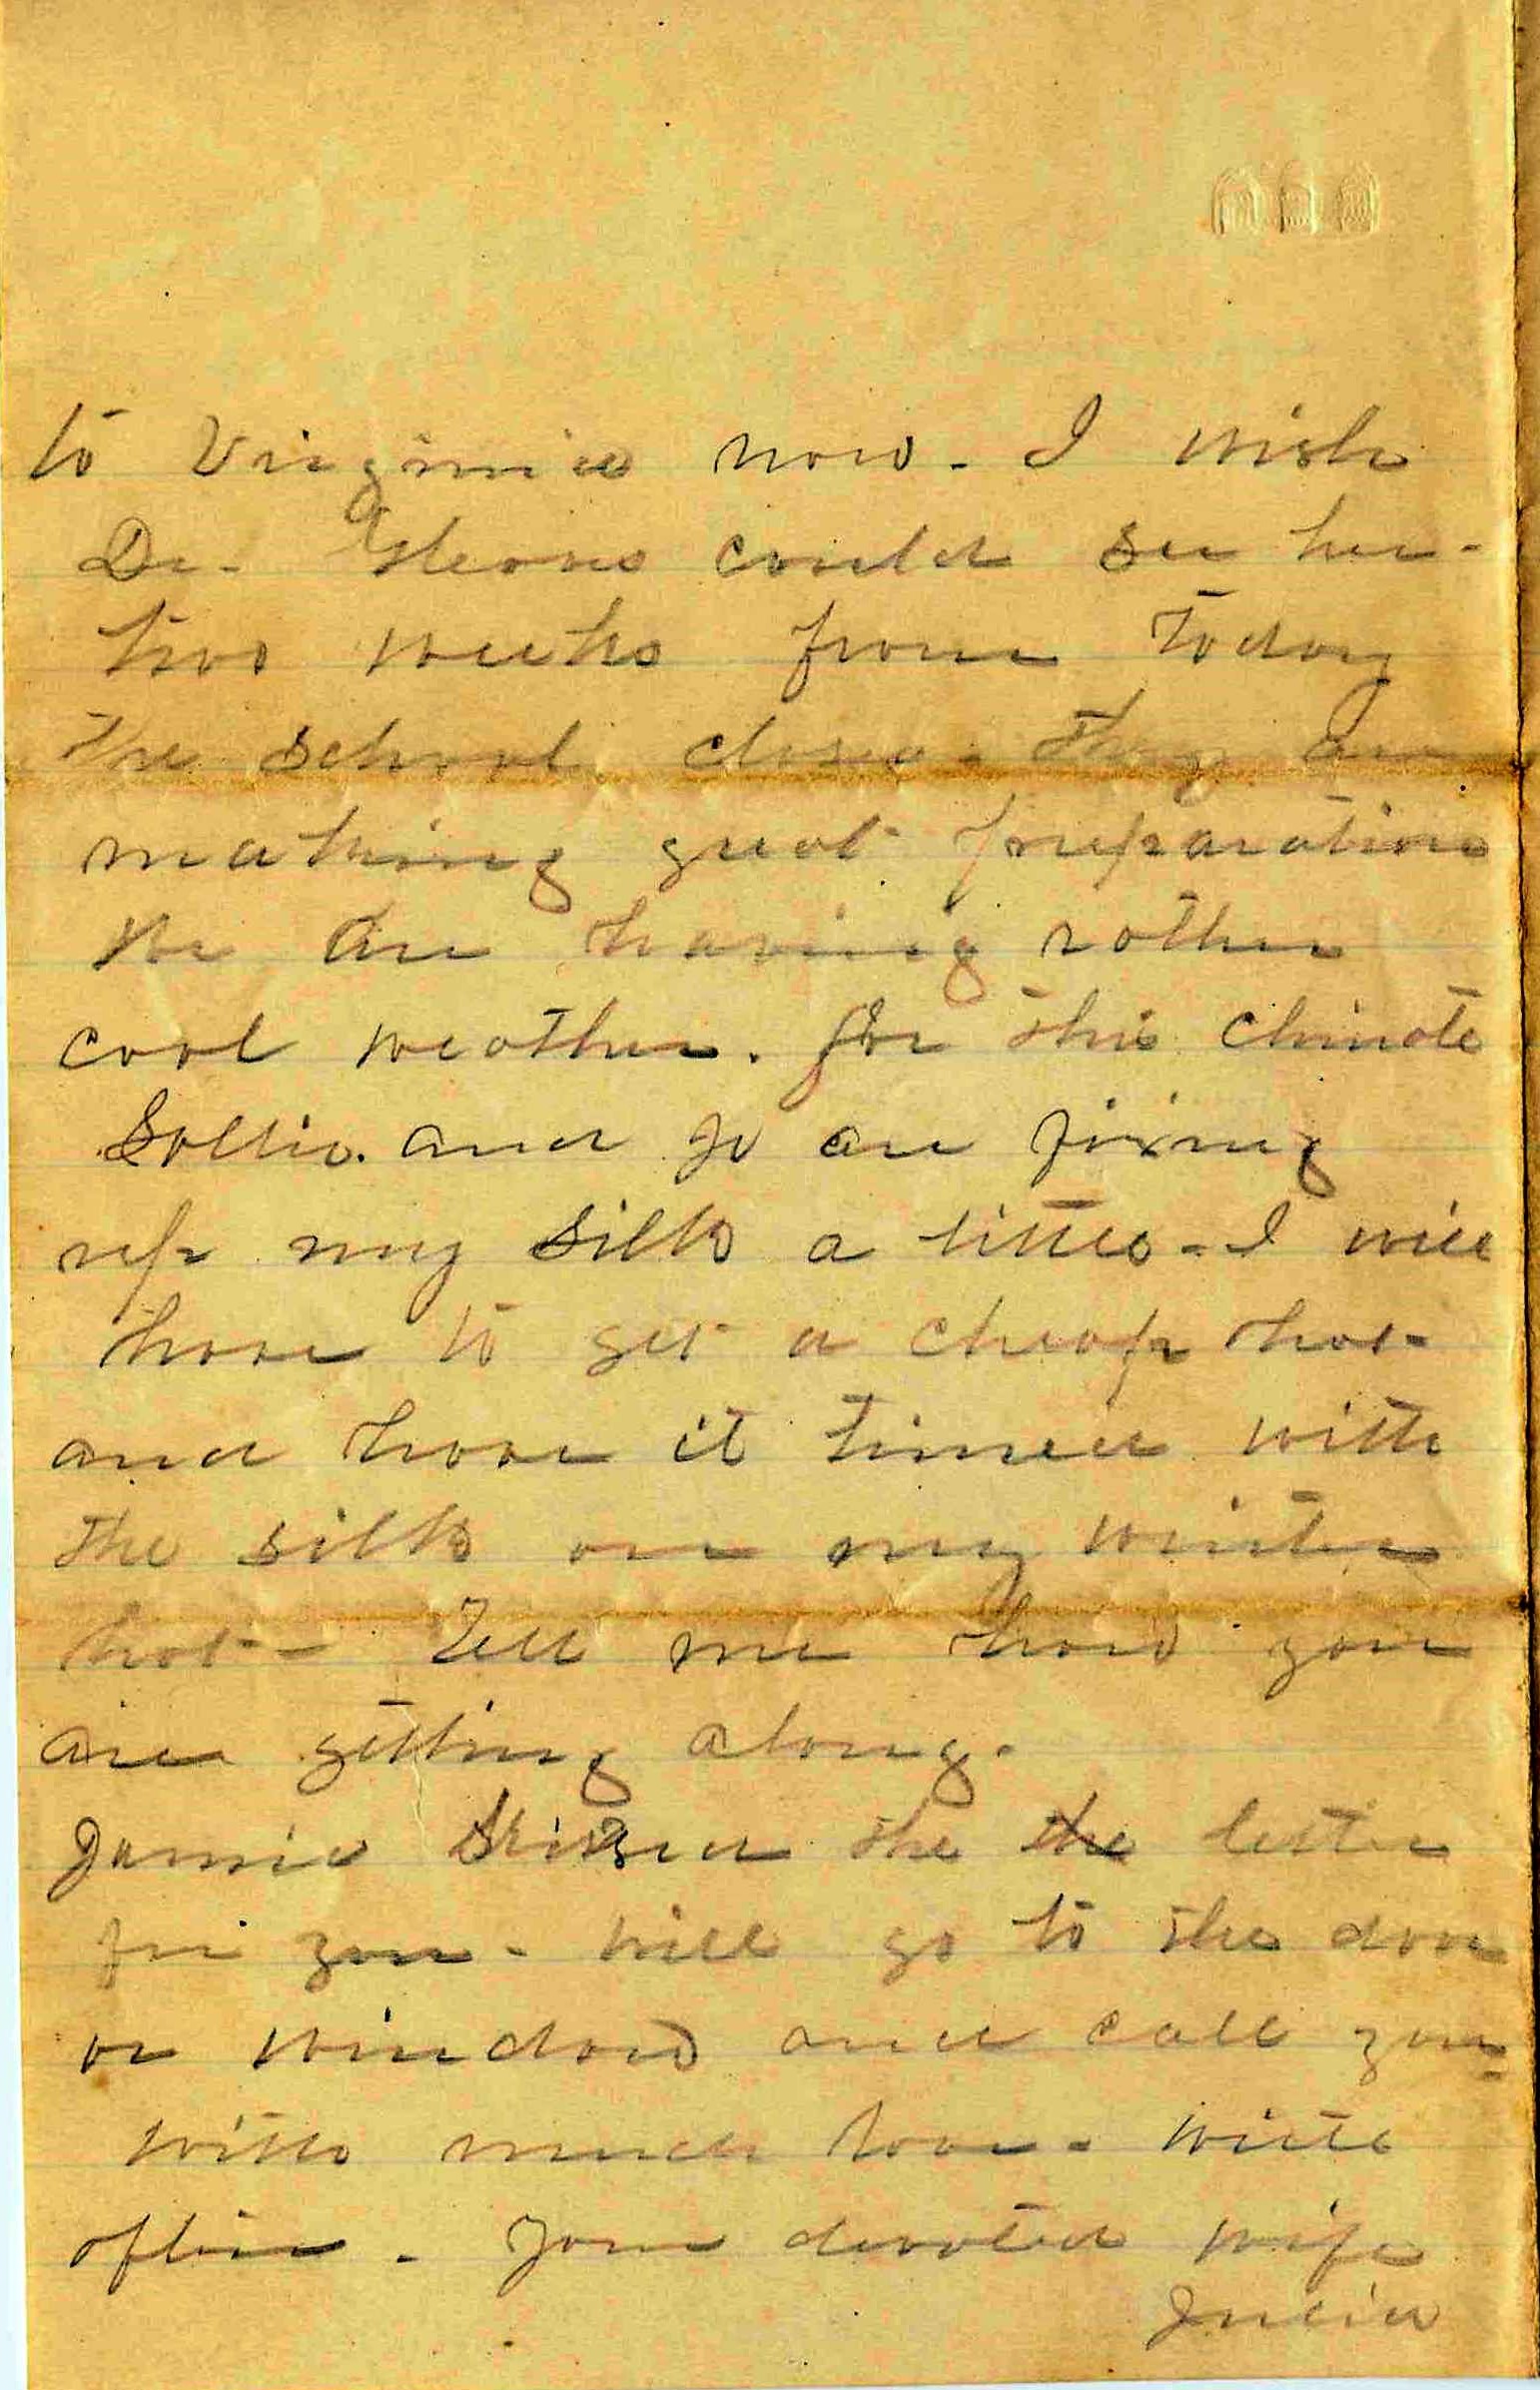 to Virginia now - I wish
Dr. could see her -
two weeks from today
the school close - They are
making great preparations
We are having rather
cool weather. for this climate
Sallie. and Jo are fixing
up my silk a little - I will
have to get a cheap hat
and have it trimed with
the silk on my winter
hat - Tell me how you
are getting along -
Jamie the the letter
for you - will go to the door
or window and call you -
with much love - write
often - Your devoted wife
Julia